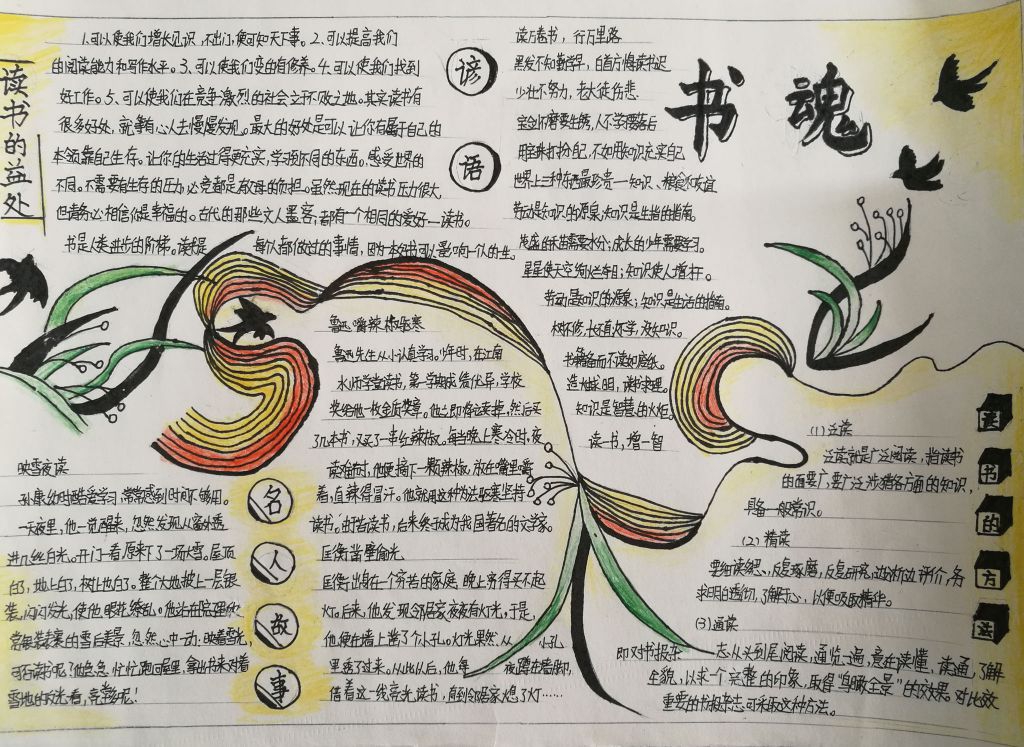 书魂
读书的益处
1.可以使我们增长见识,不出门,便可知天下事。2、可以提高我们
的阅读能力和写作水平。3、可以使我们变的有修养。4.可以使我们找到
好工作。5、可以使我们在竞争激烈的社会立于不败之地。其实读书有
很多好处,就等有心人去慢慢发现。最大的好处是可以让你有属于自己的
本领靠自己生存。让你的生活过得更充实,学习到不同的东西。感受世界的
不同。不需要有生存的压力,必竞都是有父母的负担。虽然现在的读书压力很大,
但请务必相信你是幸福的。古代的那些文人墨客,都有一个相同的爱好—读书。
书是人类进步的阶梯。读书是 每个人都做过的事情,因为一本好书可以影响一个人的一生。
谚
语
读万卷书,行万里路
黑发不知勤学早,白首方悔读书迟
少壮不努力,老大徒伤悲
宝剑不磨要生锈,人不学要落后
用宝珠打扮自己,不如用知识充实自己
世界上三种东西最珍贵—知识、粮食和友谊
劳动是知识的源泉;知识是生活的指南。
茂盛的禾苗需要水分;成长的少年需要学习。
星星使天空绚烂夺目;知识使人增才干。
劳动是知识的源泉;知识是生活的指南。
树不修,长不直;不学,没知识。
书籍备而不读如废纸。
造烛求明,读书求理。
知识是智慧的火炬。
读一书,增一智
鲁迅嚼辣椒驱寒
鲁迅先生从小认真学习。少年时,在江南
水师学堂读书,第一学期成绩优异,学校
奖给他一枚金质奖章。他立即拿去卖掉,然后买
了几本书,又买了一串红辣椒。每当晚上寒冷时,夜
读难耐,他便摘下一颗辣椒,放在嘴里嚼
着,直辣得冒汗。他就用这种办法驱寒坚持
读书。由于苦读书,后来终于成为我国著名的文学家。
匡衡凿壁偷光
匡衡出身在一个穷苦的家庭,晚上穷得买不起
灯。后来,他发现邻居家夜夜有灯光,于是,
他便在墙上凿了个小孔。灯光果然从 小孔
里透了过来。从此以后,他每 夜蹲在墙脚,
借着这一线亮光读书,直到邻居家熄了灯……
名
人
故
事
映雪夜读
孙康幼时酷爱学习,常常感到时间不够用。
一天夜里,他一觉醒来,忽然发现从窗外透
进几丝白光。开门一看,原来下了一场大雪。屋顶
白了,地上白了,树上也白了。整个大地披上一层银
装,闪闪发光,使他眼花缭乱。他站在院里欣
赏银装素裹的雪后美景,忽然心中一动:映着雪光,
可否读书呢?他急急忙忙跑回屋里,拿出书来对着
雪地的反光看,亮堂呢!
读
书
的
方
法
(1)泛读
泛读就是广泛阅读,指读书
的面要广,要广泛涉猎各方面的知识,
具备一般常识。
(2)精读
要细读多思,反复琢磨,反复研究,边分析边评价,务
求明白透彻,了解于心,以便吸取精华。
(3)通读
即对书报杂 志从头到尾阅读,通览一遍,意在读懂,读通,了解
全貌,以求一个完整的印象,取得“鸟瞰全景”的效果。对比较
重要的书报杂志可采取这种方法。